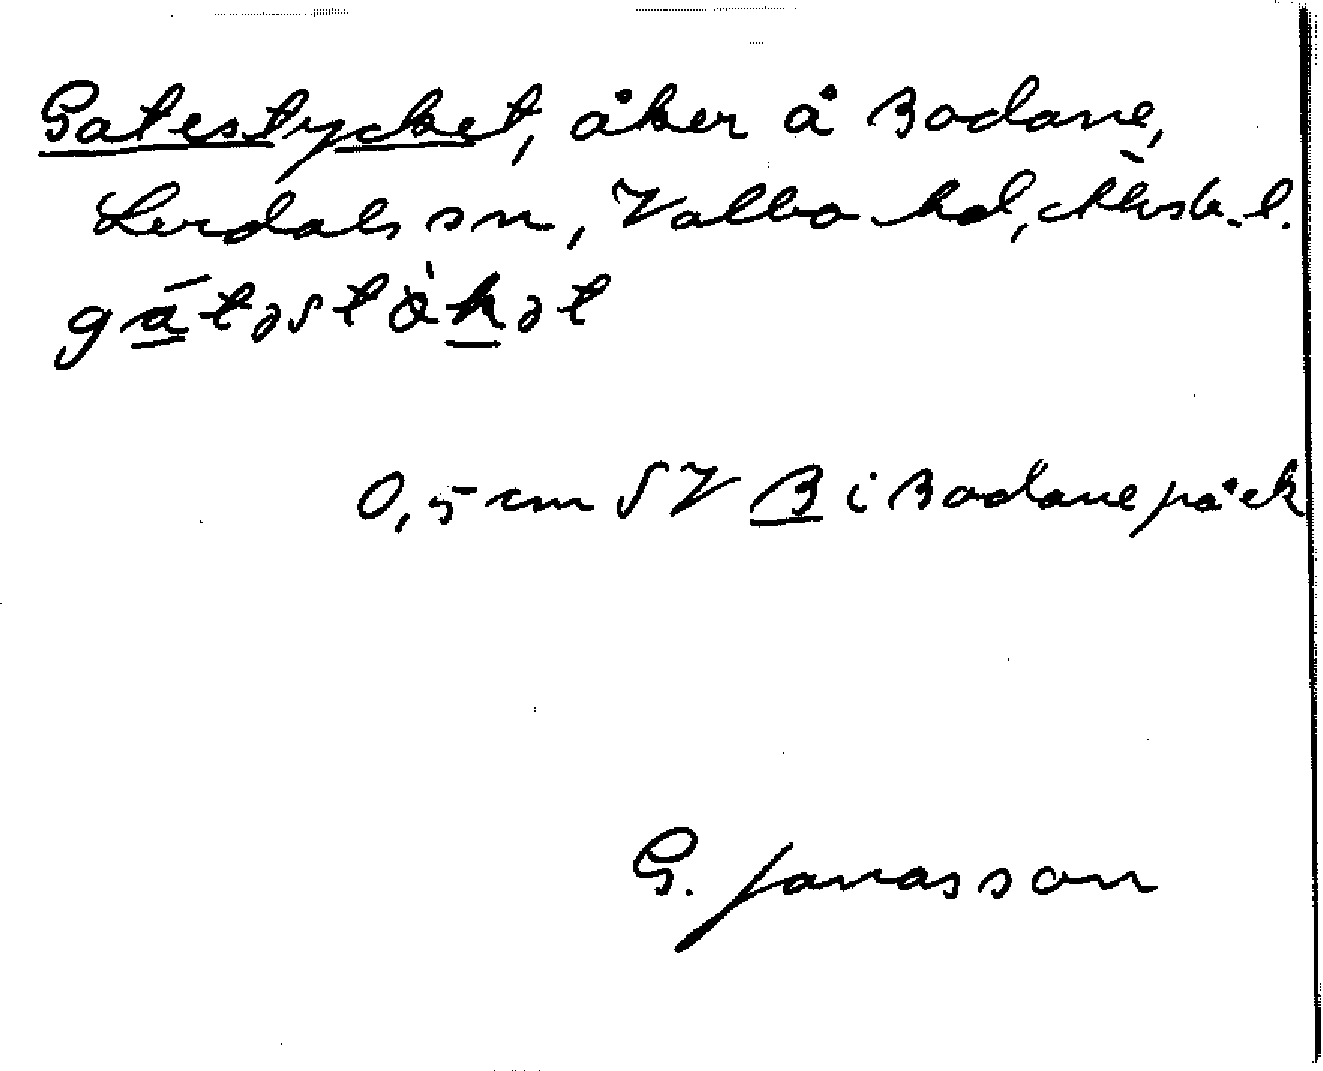 Gatestycket, åker å Bodane,
Lerdals sn, Valbo hd, Älvsb. l.
gátəstö̀kət
0,5 cm SV B i Bodane på ek
G. Jonasson